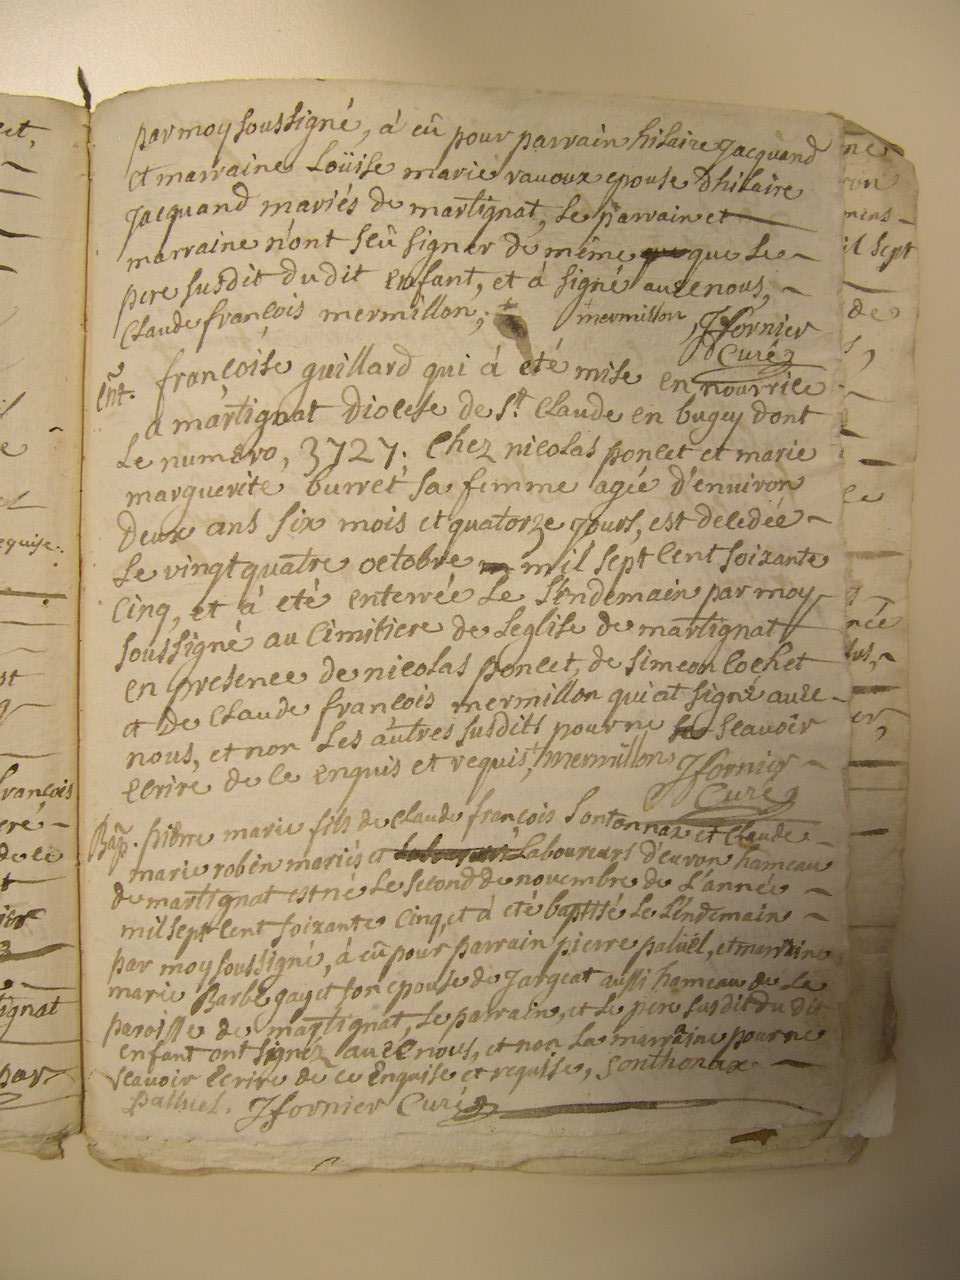 par moy soussigné, à eû pour parrain hilaire Jacquand
et marraine Loüise marie ravoux epouse d'hilaire
Jacquand mariés de martignat, Le parrain et
marraine n'ont sçû signer de même que Le
pere susdit du dit enfant, et à signé avec nous,
Claude françois mermillon, mermillon, Jfornier
Curé
Ent. françoise guillard qui à eté mise en nourrice
a martignat Diocese de St. Claude en bugey dont
Le numero, 3727. Chez nicolas poncet et marie
marguerite burret sa femme agée d'environ
deux ans six mois et quatorze jours, est decedée
Le vingt quatre octobre mil sept cent soixante
cinq, et à eté enterrée Le L'endemain par moy
soussigné au Cimitiere de Leglise de martignat
en presence de nicolas poncet, de simeon cochet
et de Claude françois mermillon qui at signé avec
nous, et non Les autres susdits pour ne sçavoir
ecrire de ce enquis et requis, mermillon Jfornier
Curé
Bap. pierre marie fils de Claude françois sontonnax et Claude
marie robin mariés et Laboureurs d'evron hameau
de martignat est né Le second de novembre de L'année
mil sept cent soixante cinq, et à eté baptisé Le L'endemain
par moy soussigné, à eû pour parrain pierre paluel, et marraine
marie Barbe gayet son epouse de Jargeat aussi hameau de La
paroisse de martignat, Le parrain, et Le pere susdit du dit
enfant ont signéz avec nous, et non La marraine pour ne
sçavoir ecrire de ce Enquise et requise, Sonthonax
palluel. Jfornier Curé